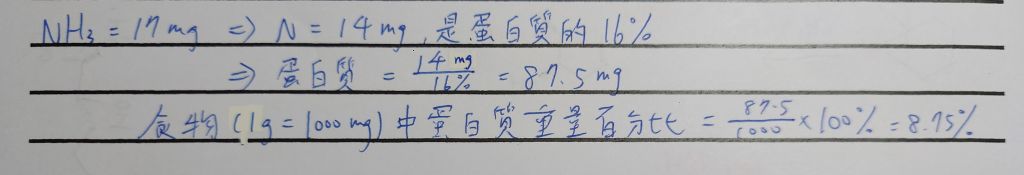 NH₃ = 17 mg ⇒ N = 14 mg, 是蛋白質的 16%
⇒ 蛋白質 = 14 mg / 16% = 87.5 mg
食物 (1g = 1000 mg) 中蛋白質重量百分比 = 87.5 / 1000 × 100% = 8.75%